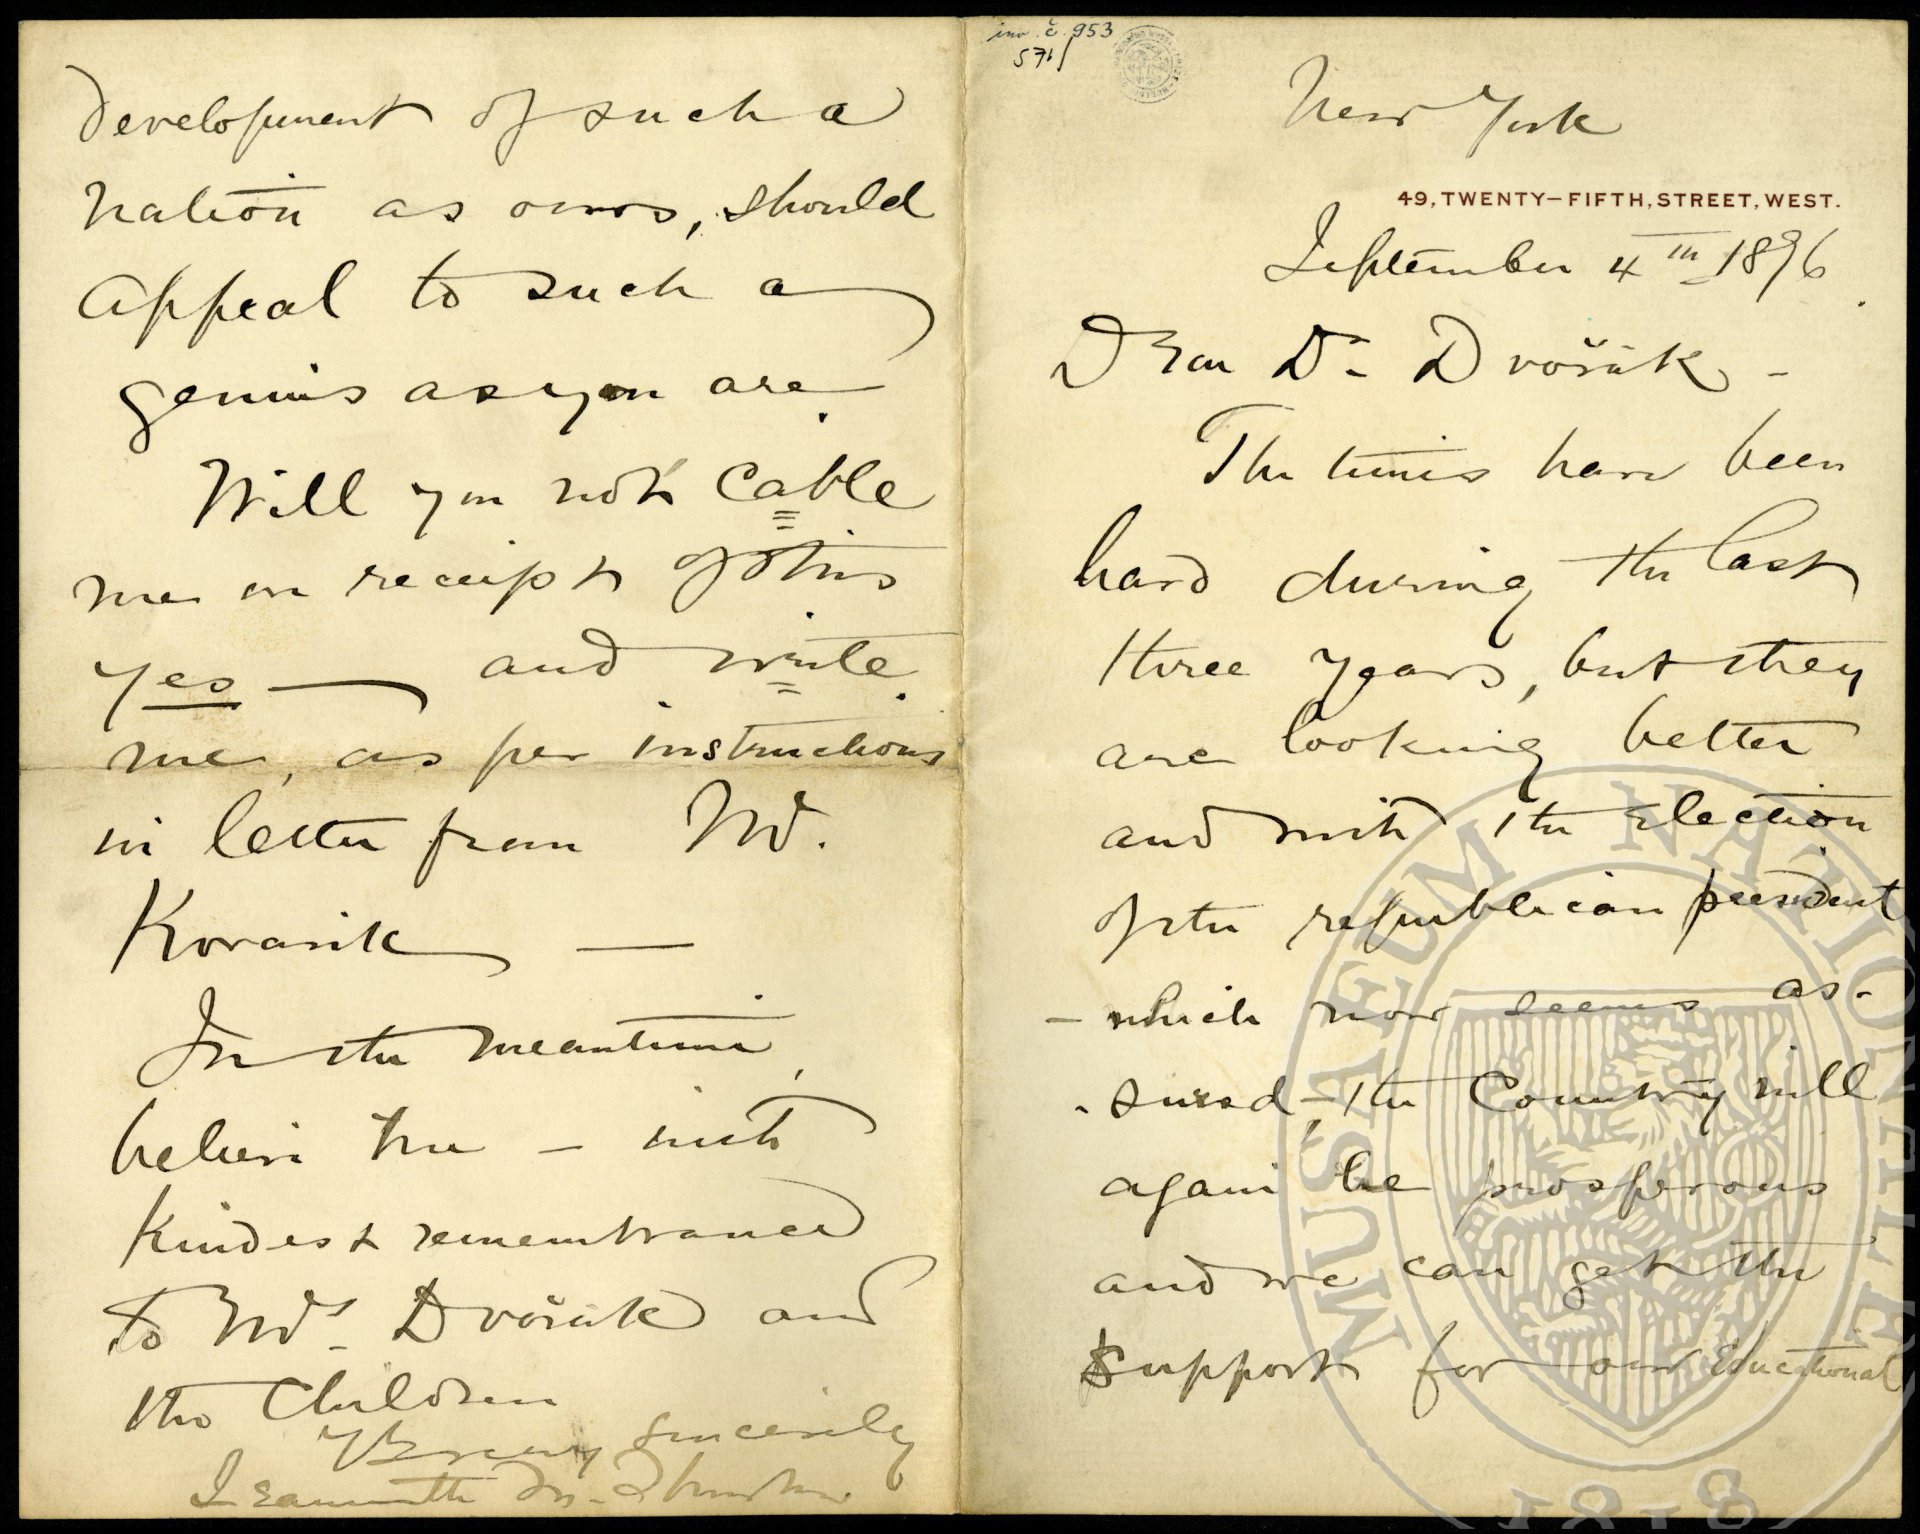 inv. č. 953
571/
New York
49, TWENTY-FIFTH, STREET, WEST.
September 4th 1896.
Dear Dr. Dvořák –
The times have been
hard during the last
three years, but they
are looking better
and with the election
of the republican president
– which now seems as-
sured, – the Country will
again be prosperous
and we can get the
support for our Educational
development of such a
nation as ours, should
appeal to such a
genius as you are.
Will you not cable
me on receipt of this
yes — and write
me, as per instructions
in letter from Mr.
Kovarik —
In the meantime,
believe me – with
kindest remembrance
to Mrs. Dvořák and
the Children
Yours very sincerely
Jeannette M. Thurber
MUSAEUM NATIONALE
1818